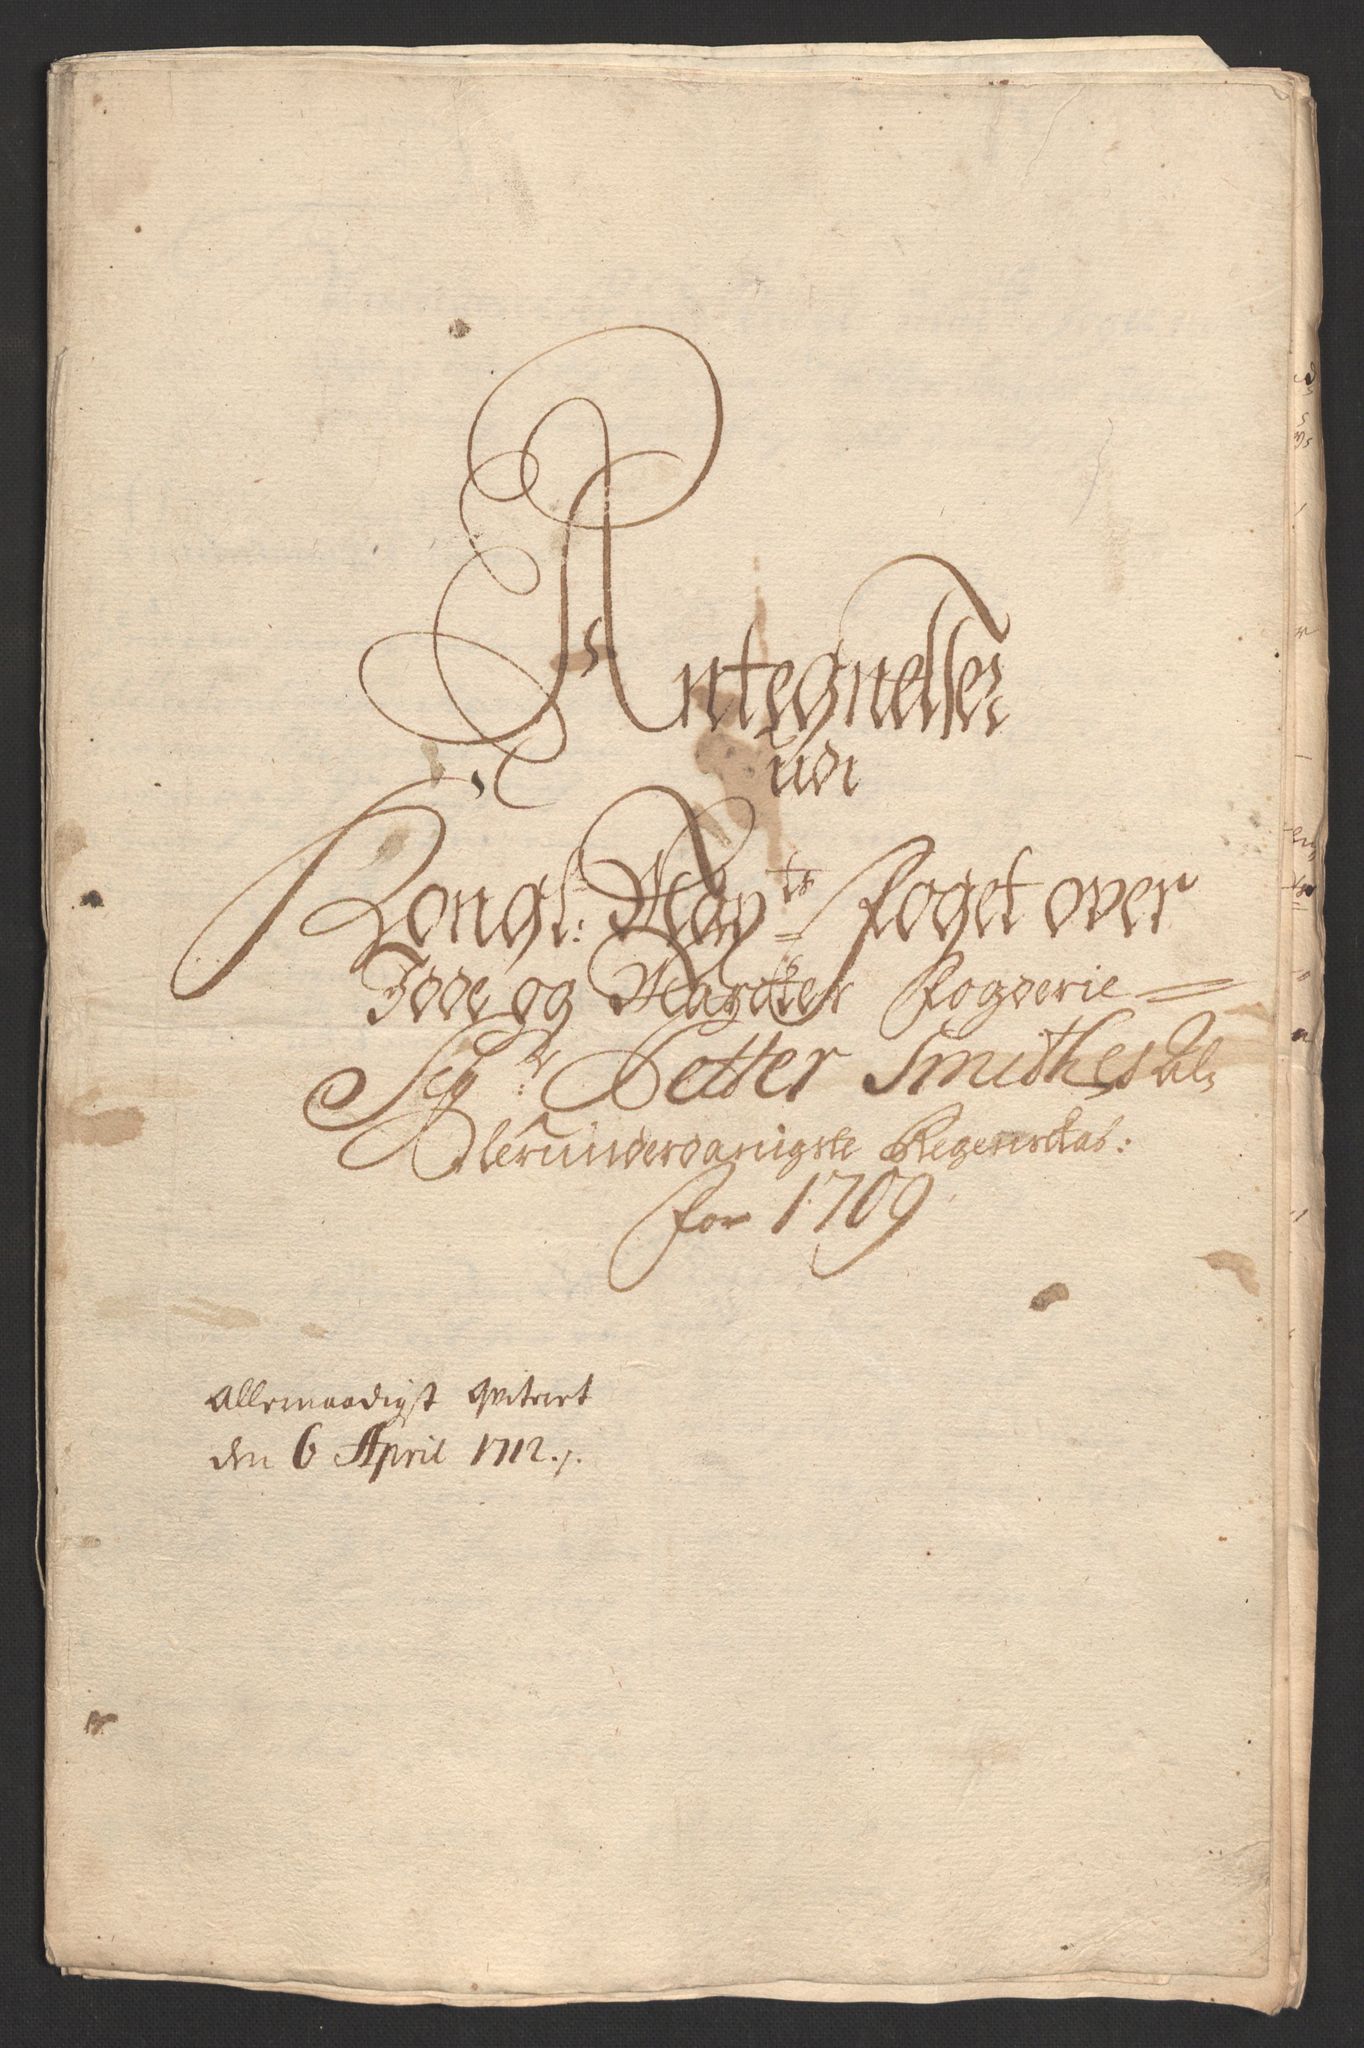 Antegnelser
udi
Kongl: Mayts foget over
Idde og Marcker fogderie =
Sigr: Petter Smithes Al=
lerunderdanigste Regenskab:
for 1709
Allernaadigst Qviteret
den 6 April 1712 ./.